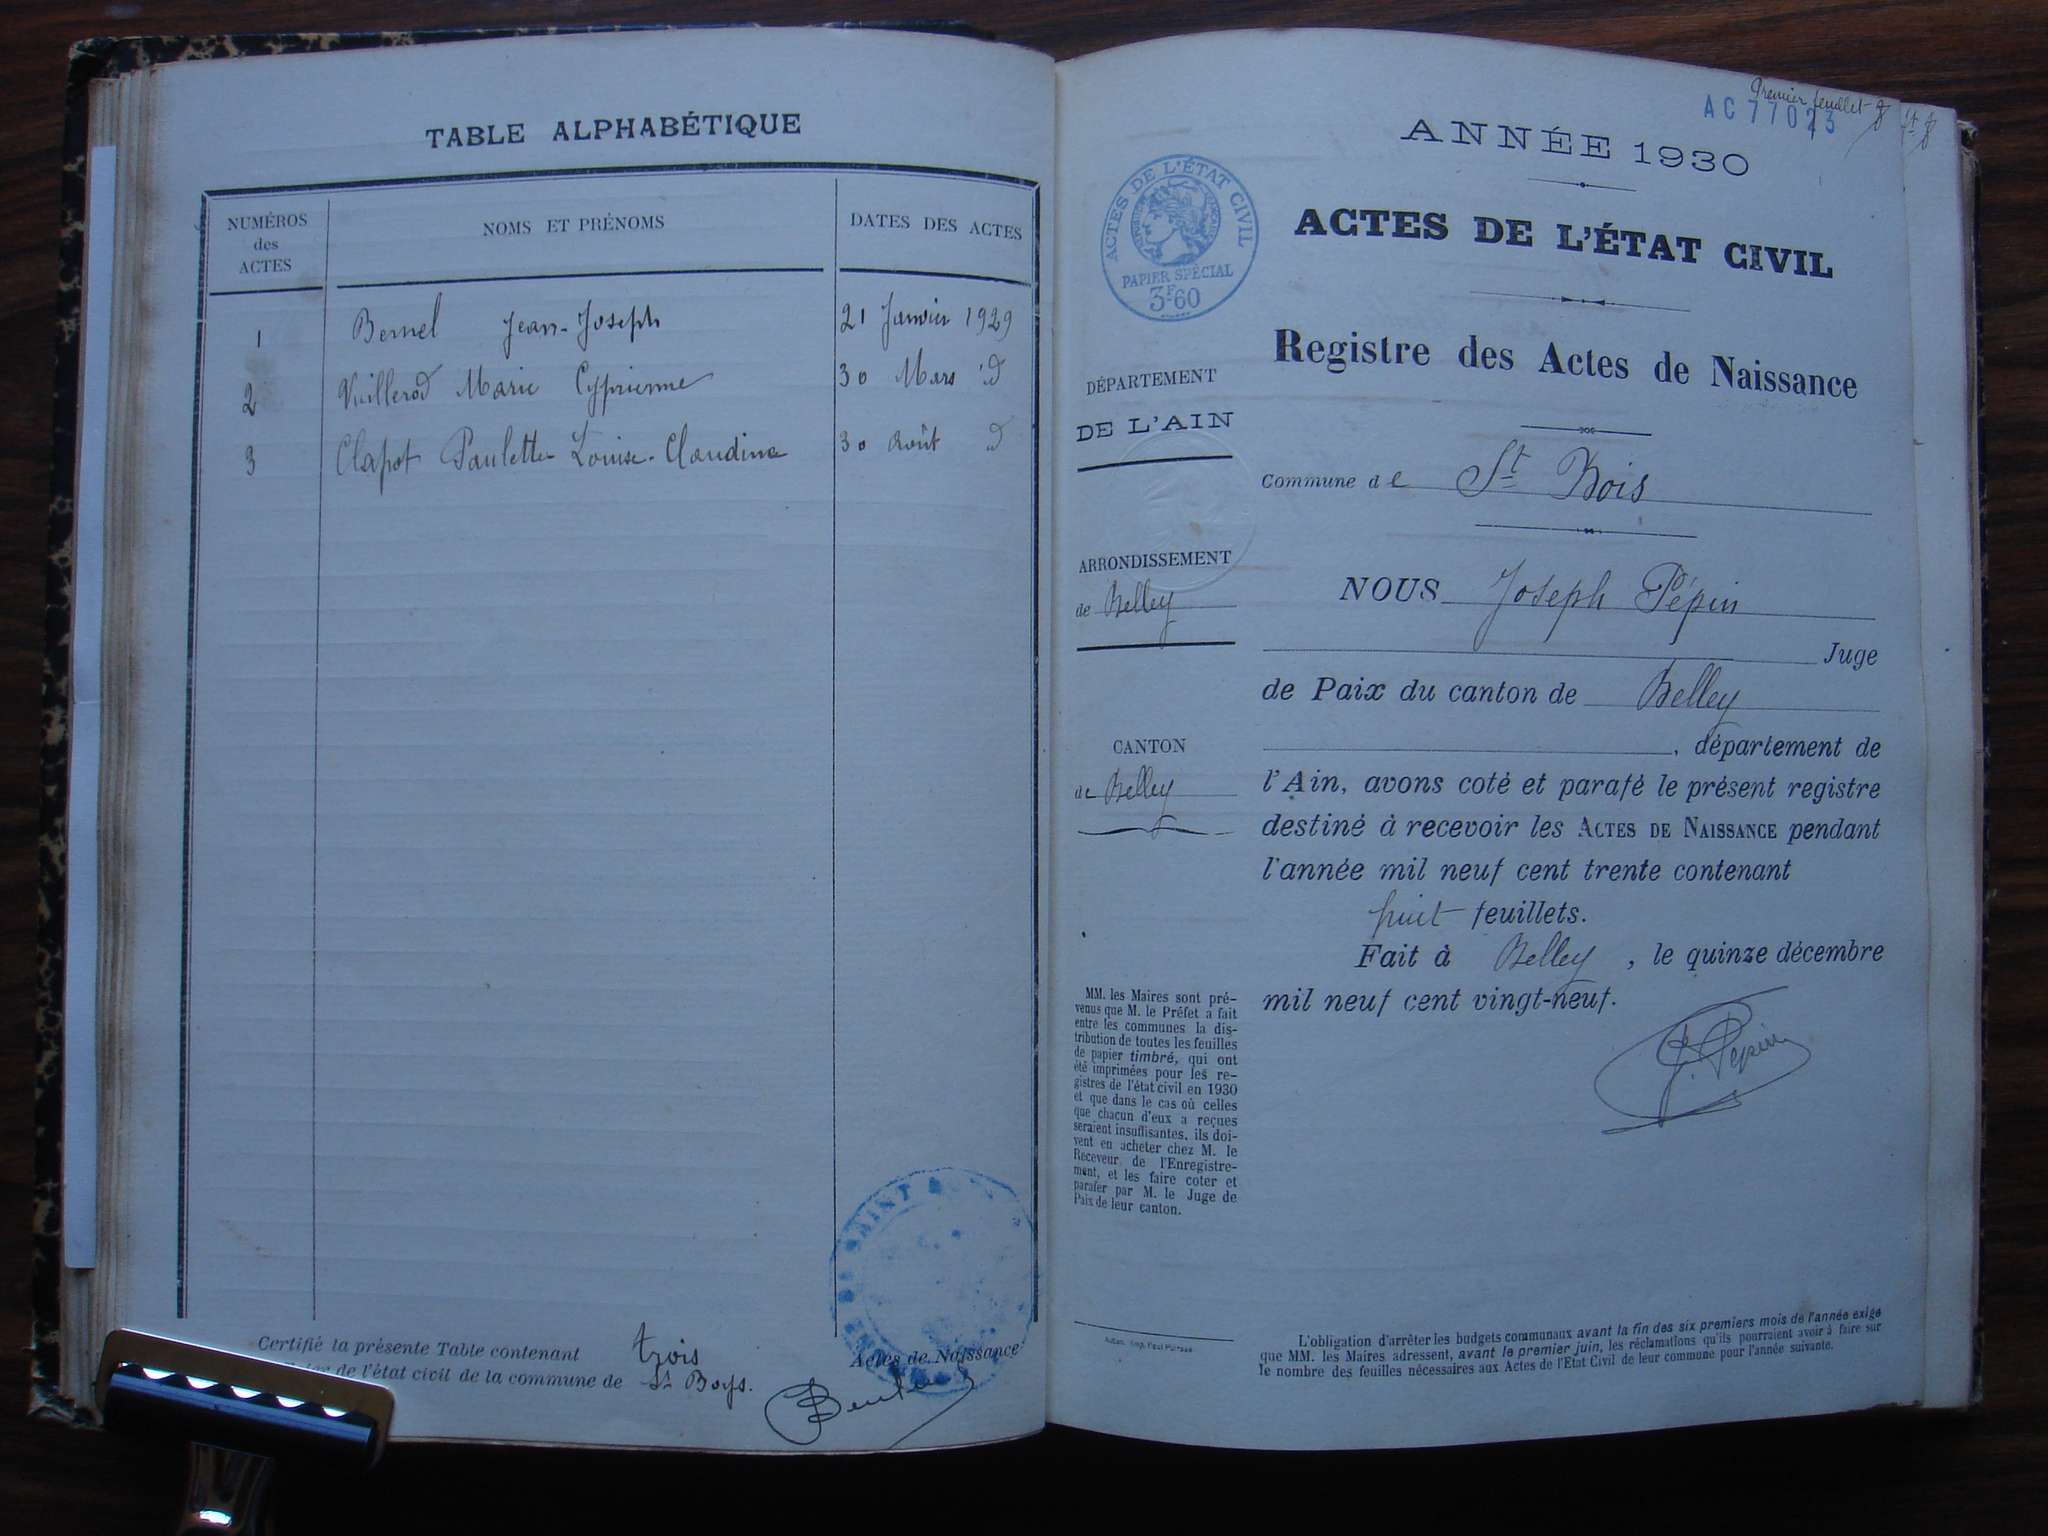 TABLE ALPHABÉTIQUE
NUMÉROS
des
ACTES
NOMS ET PRÉNOMS
DATES DES ACTES
1 Bernel Jean-Joseph 21 Janvier 1929
2 Vuillerod Marie Cyprienne 30 Mars id
3 Clapot Paulette Louise-Claudine 30 Août d
Certifié la présente Table contenant trois Actes de Naissance
de l'état civil de la commune de St Boys.
Premier feuillet
AC 77023
ANNÉE 1930
ACTES DE L'ÉTAT CIVIL
PAPIER SPÉCIAL
3F60
ACTES DE L'ÉTAT CIVIL
Registre des Actes de Naissance
DÉPARTEMENT
DE L'AIN
Commune de St Bois
ARRONDISSEMENT
de Belley
NOUS Joseph Pépin
Juge
de Paix du canton de Belley
CANTON
de Belley
, département de
l'Ain, avons coté et parafé le présent registre
destiné à recevoir les ACTES DE NAISSANCE pendant
l'année mil neuf cent trente contenant
huit feuillets.
Fait à Belley, le quinze décembre
mil neuf cent vingt-neuf.
J. Pépin
MM. les Maires sont pré-
venus que M. le Préfet a fait
entre les communes la dis-
tribution de toutes les feuilles
de papier timbré, qui ont
été imprimées pour les re-
gistres de l'état civil en 1930
et que dans le cas où celles
que chacun d'eux a reçues
seraient insuffisantes, ils doi-
vent en acheter chez M. le
Receveur de l'Enregistre-
ment, et les faire coter et
parafer par M. le Juge de
Paix de leur canton.
L'obligation d'arrêter les budgets communaux avant la fin des six premiers mois de l'année exige
que MM. les Maires adressent, avant le premier juin, les réclamations qu'ils pourraient avoir à faire sur
le nombre des feuilles nécessaires aux Actes de l'Etat Civil de leur commune pour l'année suivante.